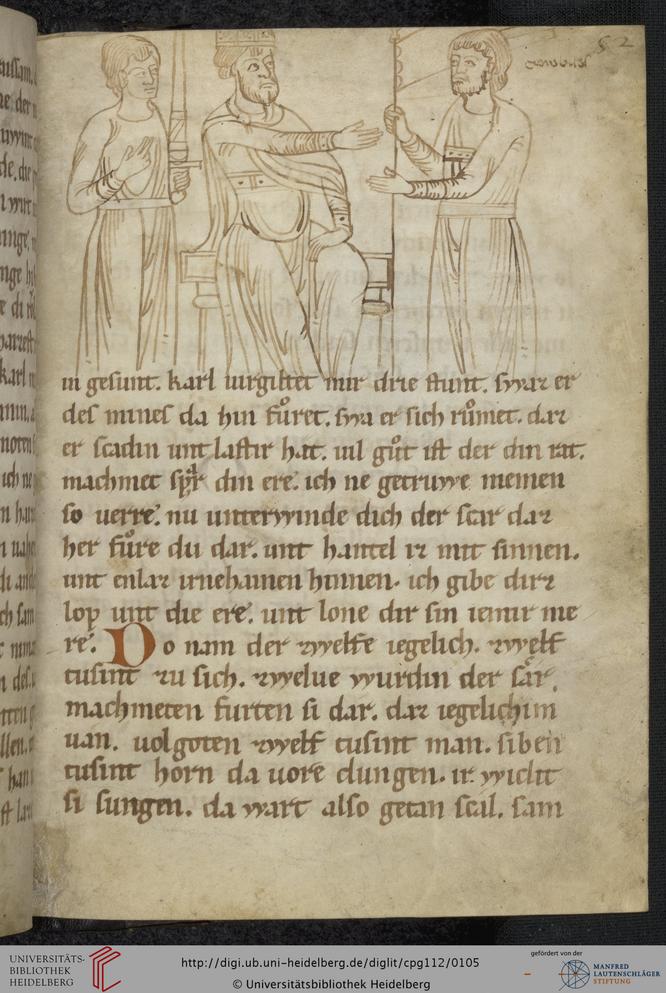 52
in gesunt. karl uirgiltet mir drie stunt. swaz er
des mines da hin fůret. swa er sich růmet. daz
er scadin unt lastir hat. uil gůt ist der din rat.
machmet din ere. ich ne getruwe niemen
so uerre. nu unterwinde dich der scar daz
her fůre du dar. unt hantel iz mit sinnen.
unt enlaz irnehainen hinnen. ich gibe dirz
lop unt die ere. unt lone dir sin iemir me
re. Do nam der zwelfe iegelich. zwelf
tusint zu sich. zwelue wurdin der scar.
machmeten furten si dar. daz iegelichim
uan. uolgoten zwelf tusint man. siben
tusint horn da uore clungen. ir wiclit
si sungen. da wart also getan scal. sam
UNIVERSITÄTS-
BIBLIOTHEK
HEIDELBERG
http://digi.ub.uni-heidelberg.de/diglit/cpg112/0105
© Universitätsbibliothek Heidelberg
gefördert von der
MANFRED
LAUTENSCHLÄGER
STIFTUNG